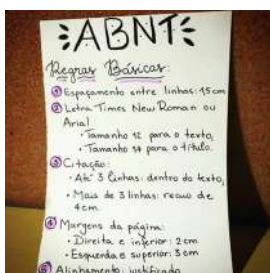 ABNT
Regras Básicas:
1 Espaçamento entre linhas: 1,5 cm
2 Letra Times New Roman ou
Arial
• Tamanho 12 para o texto,
• Tamanho 14 para o título.
3 Citação:
• Até 3 linhas: dentro do texto,
• Mais de 3 linhas: recuo de
4cm.
4 Margens da página:
• Direita e inferior: 2cm
• Esquerda e superior: 3cm
5 Alinhamento: justificado